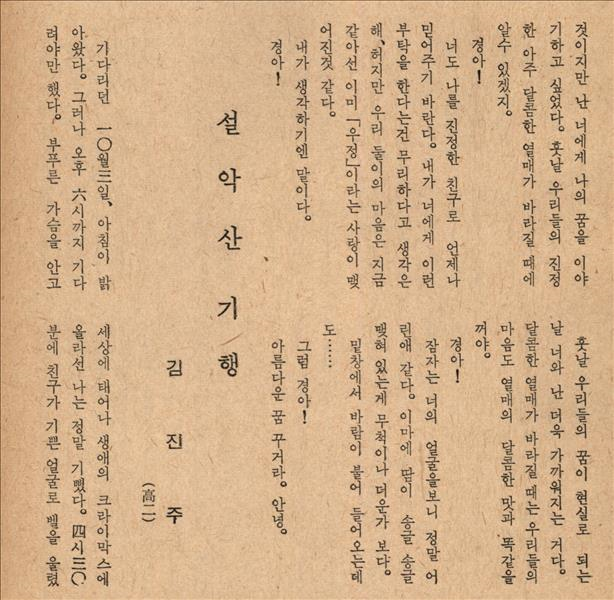 것이지만 난 너에게 나의 꿈을 이야
기하고 싶었다。 훗날 우리들의 진정
한 아주 달콤한 열매가 바라질 때에
알수 있겠지。
경아!
너도 나를 진정한 친구로 언제나
믿어주기 바란다。 내가 너에게 이런
부탁을 한다는건 무리하다고 생각은
해、허지만 우리 둘이의 마음은 지금
같아선 이미 「우정」이라는 사랑이 맺
어진것 같다。
내가 생각하기엔 말이다。
경아!
훗날 우리들의 꿈이 현실로 되는
날 너와 난 더욱 가까워지는 거다。
달콤한 열매가 바라질 때는 우리들의
마음도 열매의 달콤한 맛과 똑같을
꺼야。
경아!
잠자는 너의 얼굴을보니 정말 어
린애 같다。 이마에 땀이 송글 송글
맺혀 있는게 무척이나 더운가 보다。
밑창에서 바람이 불어 들어오는데
도……
그럼 경아!
아름다운 꿈 꾸거라。 안녕。
설악산 기행
김진주
(高二)
기다리던 一〇월三일、아침이 밝
아왔다。 그러나 오후 六시까지 기다
려야만 했다。 부푸른 가슴을 안고
세상에 태어나 생애의 크라이막스에
올라선 나는 정말 기뻤다。 四시三〇
분에 친구가 기쁜 얼굴로 벨을 울렸